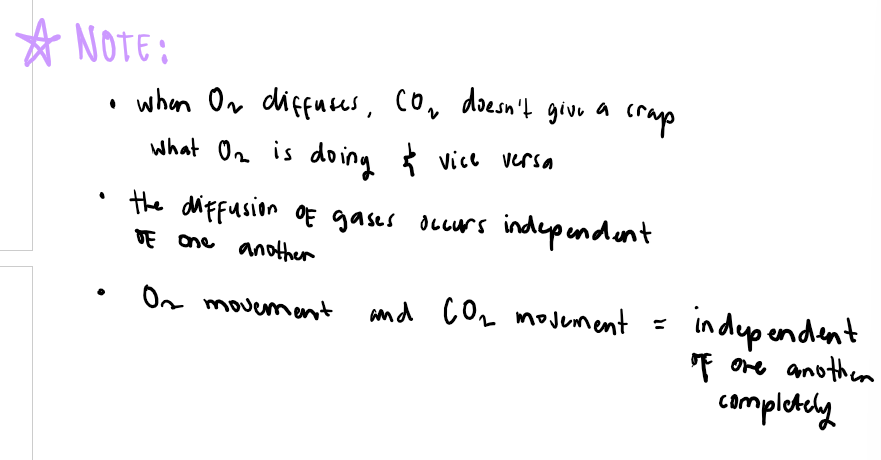 ☆ NOTE:
• when O₂ diffuses, CO₂ doesn't give a crap
what O₂ is doing & vice versa
• the diffusion of gases occurs independent
of one another
• O₂ movement and CO₂ movement = independent
of one another
completely